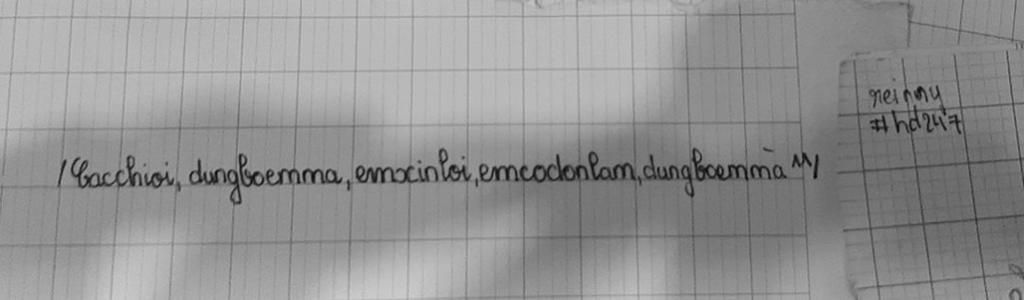 /Cacchioi, dungboemma, emxinloi, emcodonlam, dungboemmà ^^/
neinny
#hd24'7